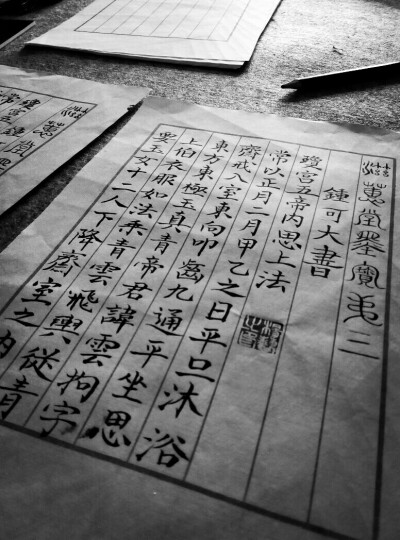 滋蕙堂墨寶弟三
鍾可大書
瓊宮五帝內思上法
常以正月二月甲乙之日平旦沐浴
齋戒入室東向叩齒九通平坐思
東方東極玉真青帝君諱雲拘字
上伯衣服如法乘青雲飛輿從青
罡玉女十二人下降齋室之內
滋蕙